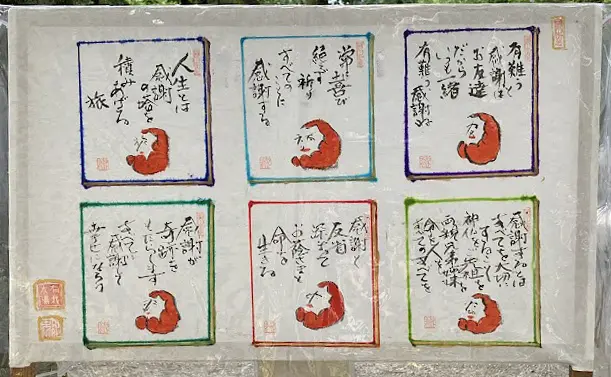 有難うと
感謝は
お友達
だから
いつも一緒
有難う感謝ね
常に喜び
絶えず祈り
すべてのことに
感謝する
人生とは
感謝
の塔を
積みあげる
旅
感謝するとは
すべてを大切に
すること
神仏を 先祖を
両親兄弟姉妹を
命を 人を
全てのすべてを
感謝と
反省
深めて
お蔭さまと
命を
生きる
感謝が
奇跡を
もたらします
すべてに
感謝して